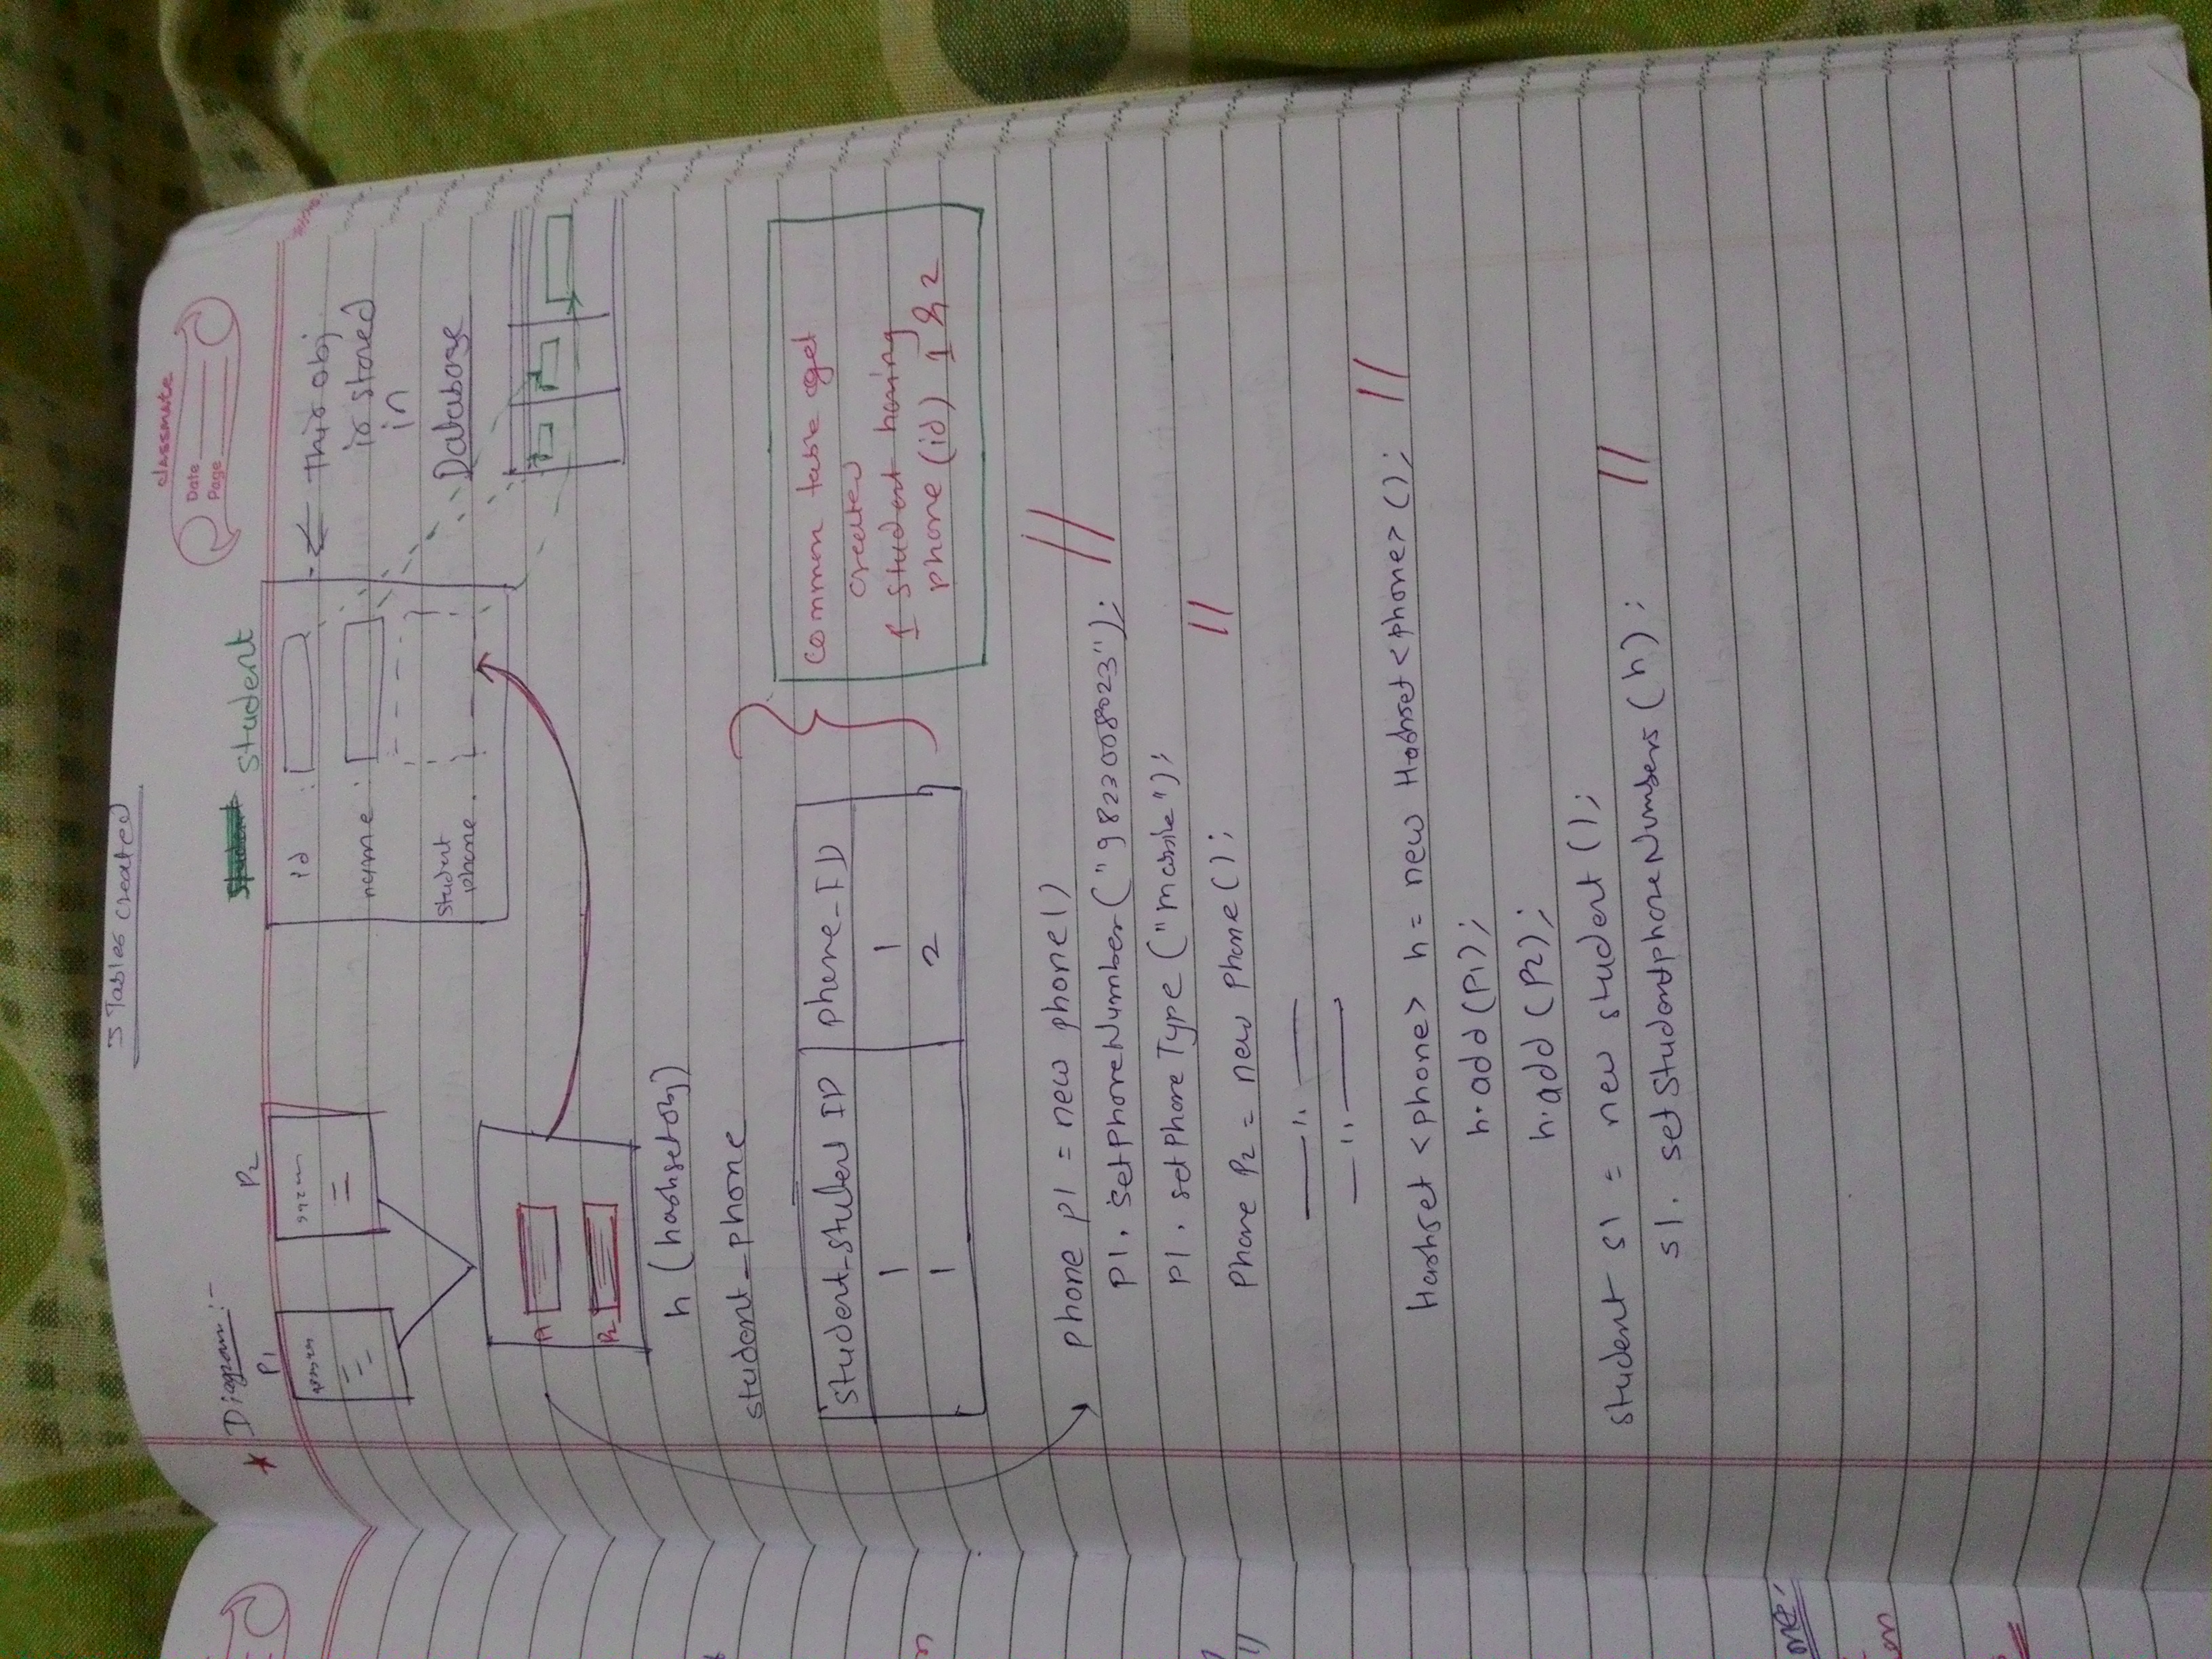 3 Tables created
classmate
Date
Page
Diagram :-
P1
P2
student
id :
name :
student
phone
This obj
is stored
in
Database
P1
P2
h (hashset obj)
student_phone
student_student ID
phone_ID
1
1
1
2
common table get
created
1 student having
phone (id) 1 & 2
phone p1 = new phone()
p1. setPhoneNumber("9823008023");
p1. setPhoneType ("mobile");
Phone P2 = new Phone();
—— 1, ——
— 1, ——
Hashset <phone> h = new Hashset <phone> ();
h.add(P1);
h.add (P2);
student s1 = new student ();
s1. setStudentphoneNumbers (h) ;
one-
on